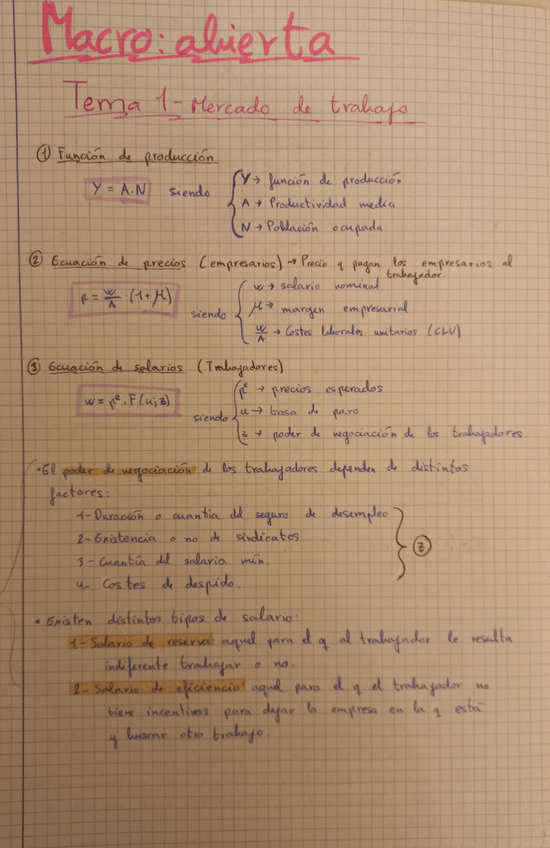 Macro: abierta
Tema 1- Mercado de trabajo
① Función de producción
Y = A.N siendo
Y → función de producción
A → Productividad media
N → Población ocupada
② Ecuación de precios (empresarios) → Precio q pagan los empresarios al trabajador.
P = w/A · (1+μ) siendo
w → salario nominal
μ → margen empresarial
w/A → Costes laborales unitarios (CLU)
③ Ecuación de salarios (Trabajadores)
w = pᵉ. F(u; z) siendo
pᵉ → precios esperados
u → tasa de paro
z → poder de negociación de los trabajadores
• El poder de negociación de los trabajadores depende de distintos
factores:
1- Duración o cuantía del seguro de desempleo
2- Existencia o no de sindicatos
3- Cuantía del salario mín.
4- Costes de despido.
} ⓩ
• Existen distintos tipos de salario:
1- Salario de reserva aquel para el q al trabajador le resulta
indiferente trabajar o no.
2- Salario de eficiencia aquel para el q el trabajador no
tiene incentivos para dejar la empresa en la q está
y buscar otro trabajo.